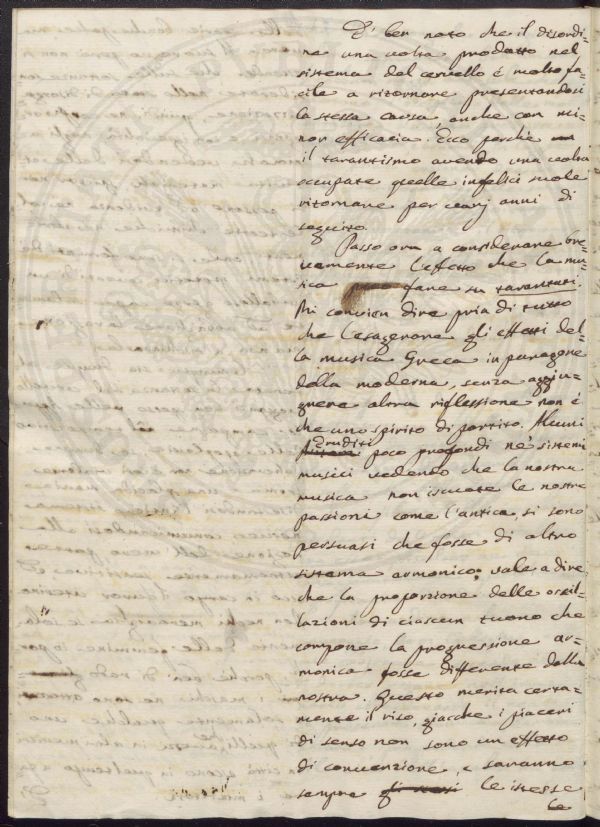 E' ben noto che il disordi-
ne una volta prodotto nel
sistema del cervello è molto fa-
cile a ritornare presentandosi
la stessa causa, anche con mi-
nor efficacia. Ecco perchè
il tarantismo avendo una volta
occupate quelle infelici suole
ritornare per varj anni di
seguito.
Passo ora a considerare bre-
vemente l'effetto che la mu-
sica può fare su tarantati.
Mi convien dire pria di tutto
che l'esagerare gli effetti del-
la musica Greca in paragone
della moderna, senza aggiu-
gnere altra riflessione non è
che uno spirito di partito. Alcuni
Eruditi
poco profondi ne' sistemi
musici vedendo che la nostra
musica non iscuote le nostre
passioni come l'antica, si sono
persuasi che fosse di altro
sistema armonico; vale a dire
che la proporzione delle oscil-
lazioni di ciascun tuono che
compone la progressione ar-
monica fosse differente dalla
nostra. Questo merita certa-
mente il riso, giacchè i piaceri
di senso non sono un effetto
di convenzione, e saranno
sempre gli stessi le istesse
le